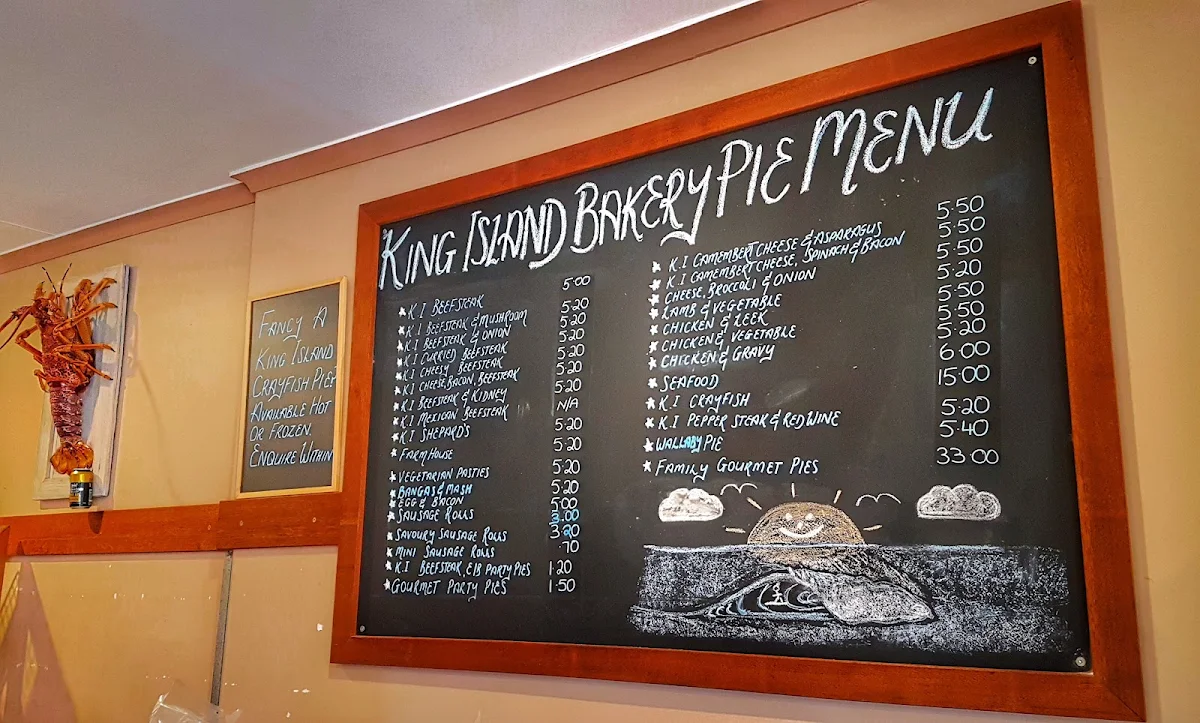 FANCY A
KING ISLAND
CRAYFISH PIE?
AVAILABLE HOT
OR FROZEN.
ENQUIRE WITHIN
KING ISLAND BAKERY PIE MENU
K.I BEEFSTEAK 5:00
K.I BEEFSTEAK & MUSHROOM 5.20
K.I BEEFSTEAK & ONION 5.20
K.I CURRIED BEEFSTEAK 5.20
K.I CHEESY BEEFSTEAK 5.20
K.I CHEESE, BACON, BEEFSTEAK 5.20
K.I BEEFSTEAK & KIDNEY 5.20
K.I MEXICAN BEEFSTEAK N/A
K.I SHEPARD'S 5.20
FARMHOUSE 5.20
VEGETARIAN PASTIES 5.20
BANGAS & MASH 5.20
EGG & BACON 5.00
SAUSAGE ROLLS 3.00
SAVOURY SAUSAGE ROLLS 3.20
MINI SAUSAGE ROLLS .70
K.I BEEFSTEAK, E/B PARTY PIES 1.20
GOURMET PARTY PIES 1.50
K.I CAMEMBERT CHEESE & ASPARAGUS 5.50
K.I CAMEMBERT CHEESE, SPINACH & BACON 5.50
CHEESE, BROCCOLI & ONION 5.50
LAMB & VEGETABLE 5.20
CHICKEN & LEEK 5.50
CHICKEN & VEGETABLE 5.50
CHICKEN & GRAVY 5.20
SEAFOOD 6.00
K.I CRAYFISH 15.00
K.I PEPPER STEAK & RED WINE 5.20
WALLABY PIE 5.40
FAMILY GOURMET PIES 33.00